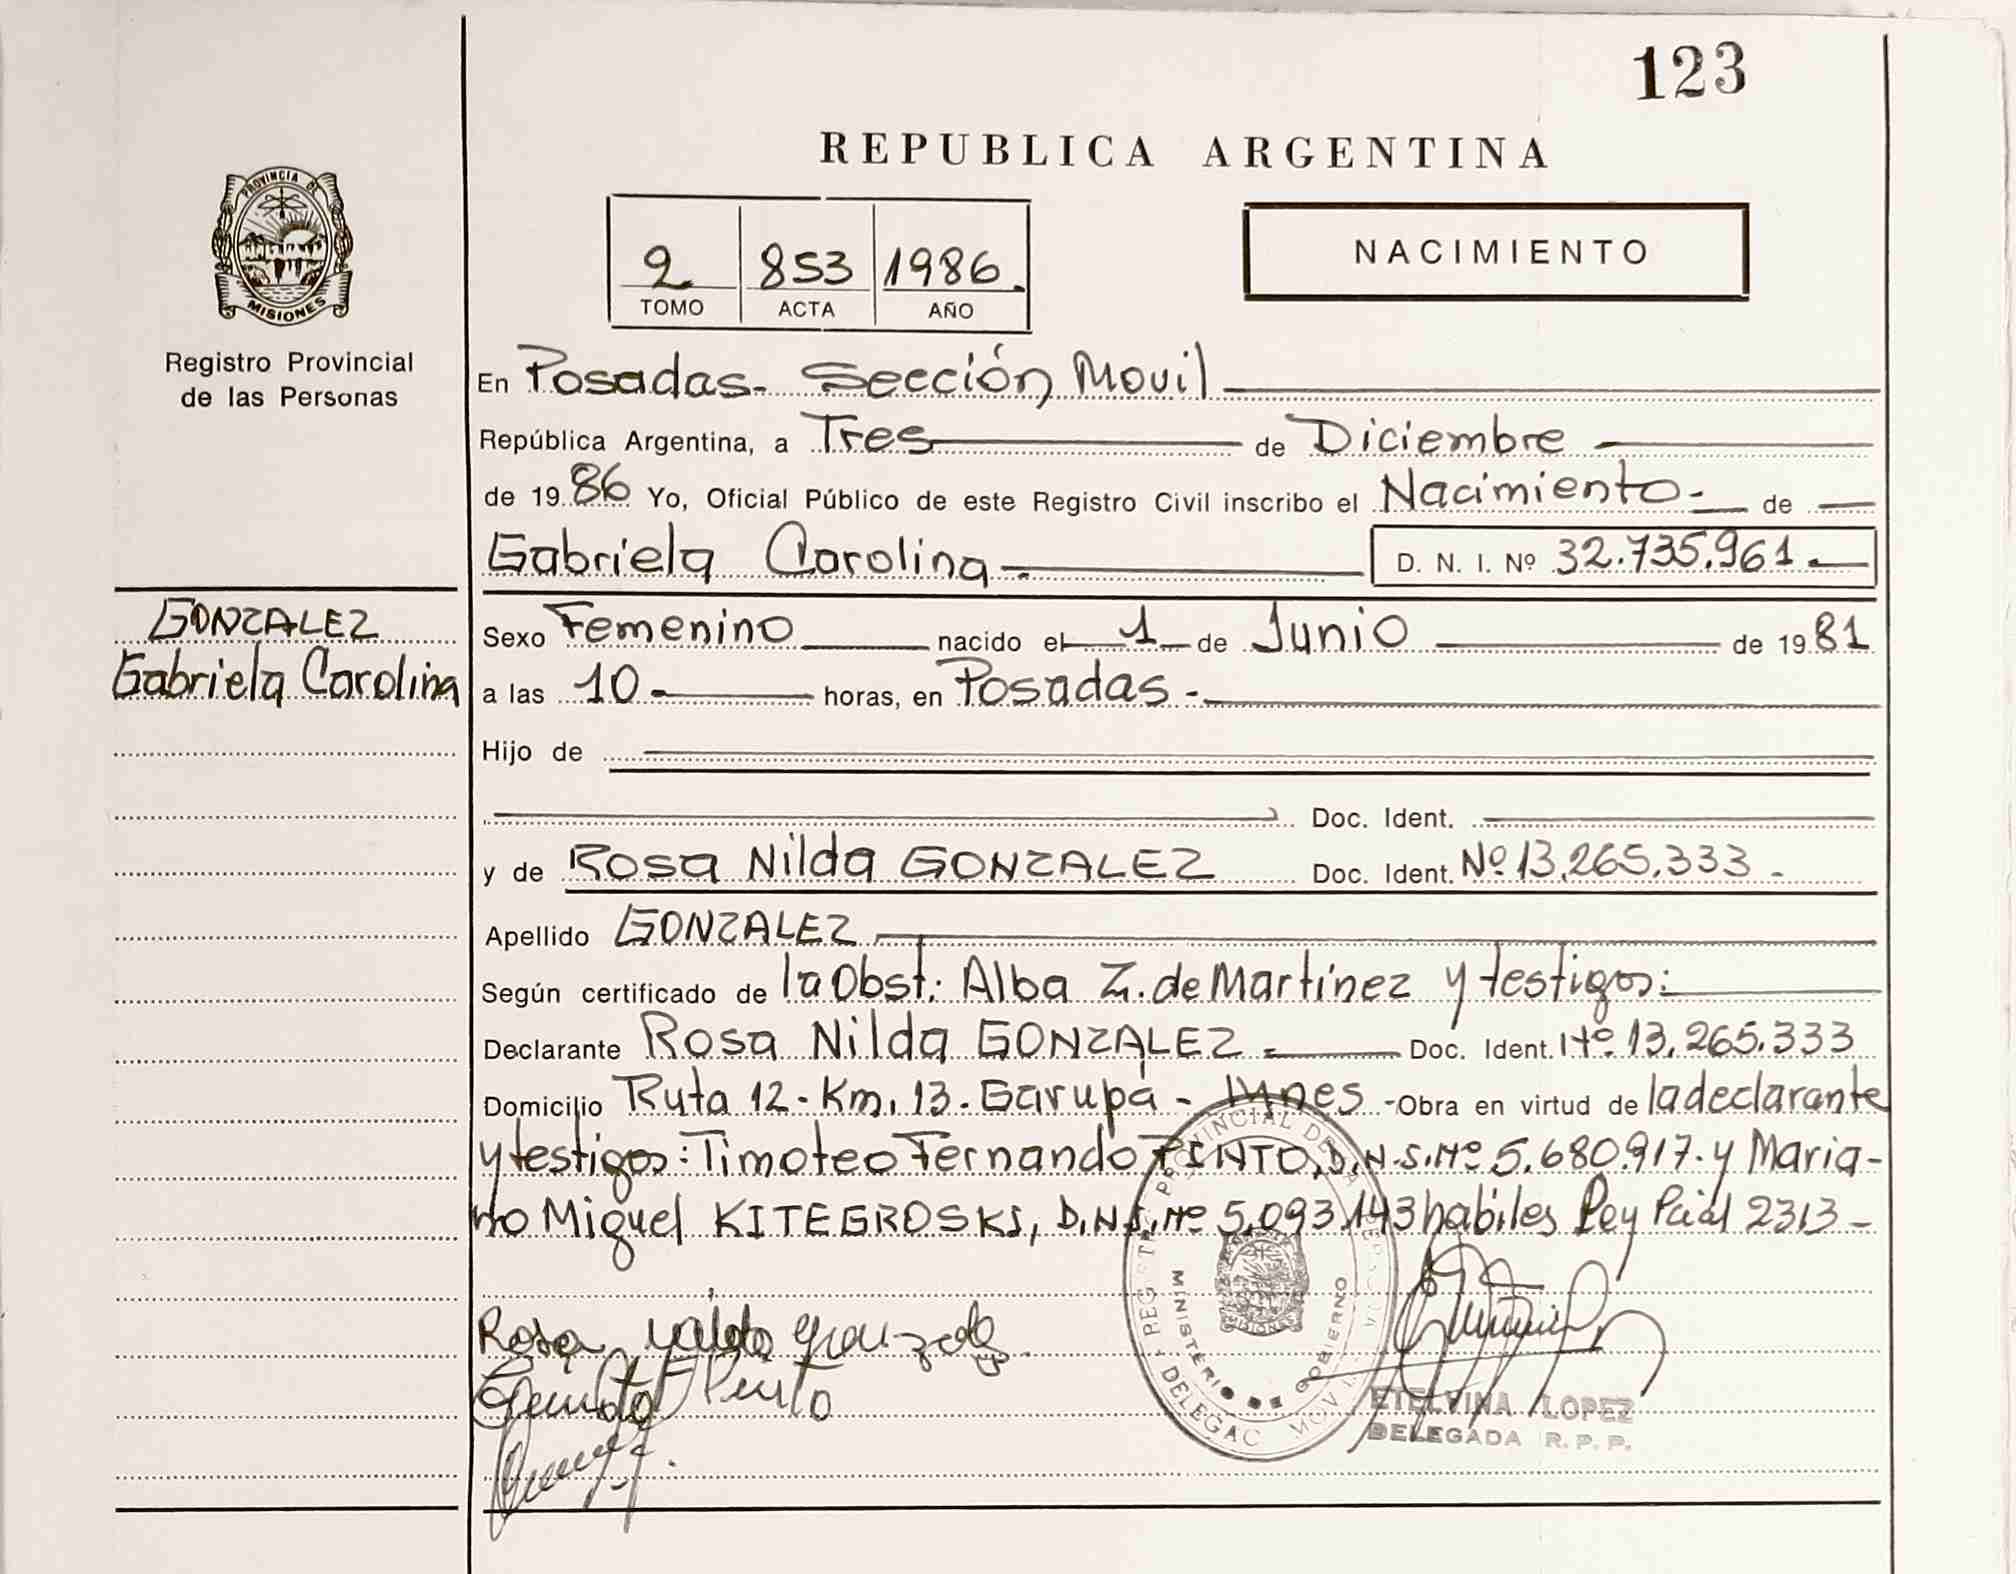 123
REPUBLICA ARGENTINA
PROVINCIA DE
MISIONES
Registro Provincial
de las Personas
2 853 1986.
TOMO ACTA AÑO
NACIMIENTO
En Posadas- Sección Movil
República Argentina, a Tres de Diciembre
de 1986 Yo, Oficial Público de este Registro Civil inscribo el Nacimiento- de
Gabriela Carolina D. N. I. Nº 32.735.961
GONZALEZ
Gabriela Carolina
Sexo Femenino nacido el 1 de Junio de 1981
a las 10 horas, en Posadas -
Hijo de
Doc. Ident.
y de Rosa Nilda GONZALEZ Doc. Ident. Nº 13.265.333 -
Apellido GONZALEZ
Según certificado de la Obst: Alba Z. de Martínez y testigos:
Declarante Rosa Nilda GONZALEZ Doc. Ident. Nº 13.265.333
Domicilio Ruta 12 - Km. 13 - Garupá - Mnes - Obra en virtud de la declarante
y testigos: Timoteo Fernando PINTO, D.N.I. Nº 5.680.917 - y Maria-
no Miguel KITEGROSKI, D.N.I. Nº 5.093.143 habiles Ley Pcial 2313 -
Rosa Nilda Gonzalez
Pinto
MINISTERIO DE GOBIERNO
ETELVINA LOPEZ
DELEGADA R. P. P.